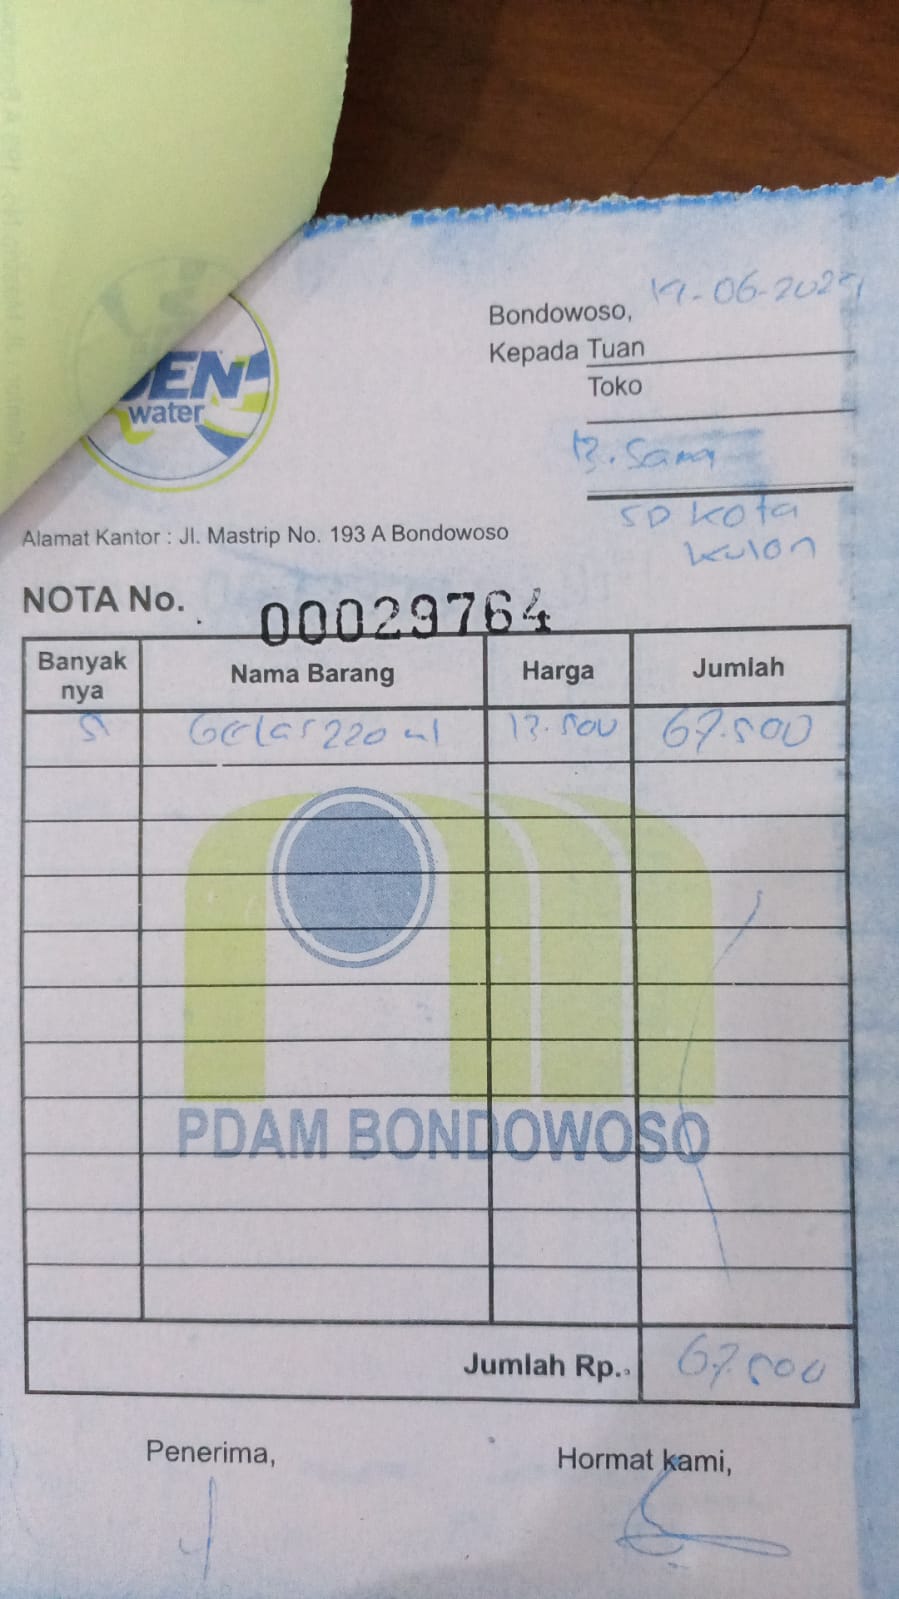 Bondowoso, 19-06-2024
Kepada Tuan
Toko
water
B. Sama
SD Kota
Kulon
Alamat Kantor : Jl. Mastrip No. 193 A Bondowoso
NOTA No. 00029764
Banyak nya Nama Barang Harga Jumlah
5 Gelas 220 ml 13.500 67.500
PDAM BONDOWOSO
Jumlah Rp. 67.500
Penerima, Hormat kami,